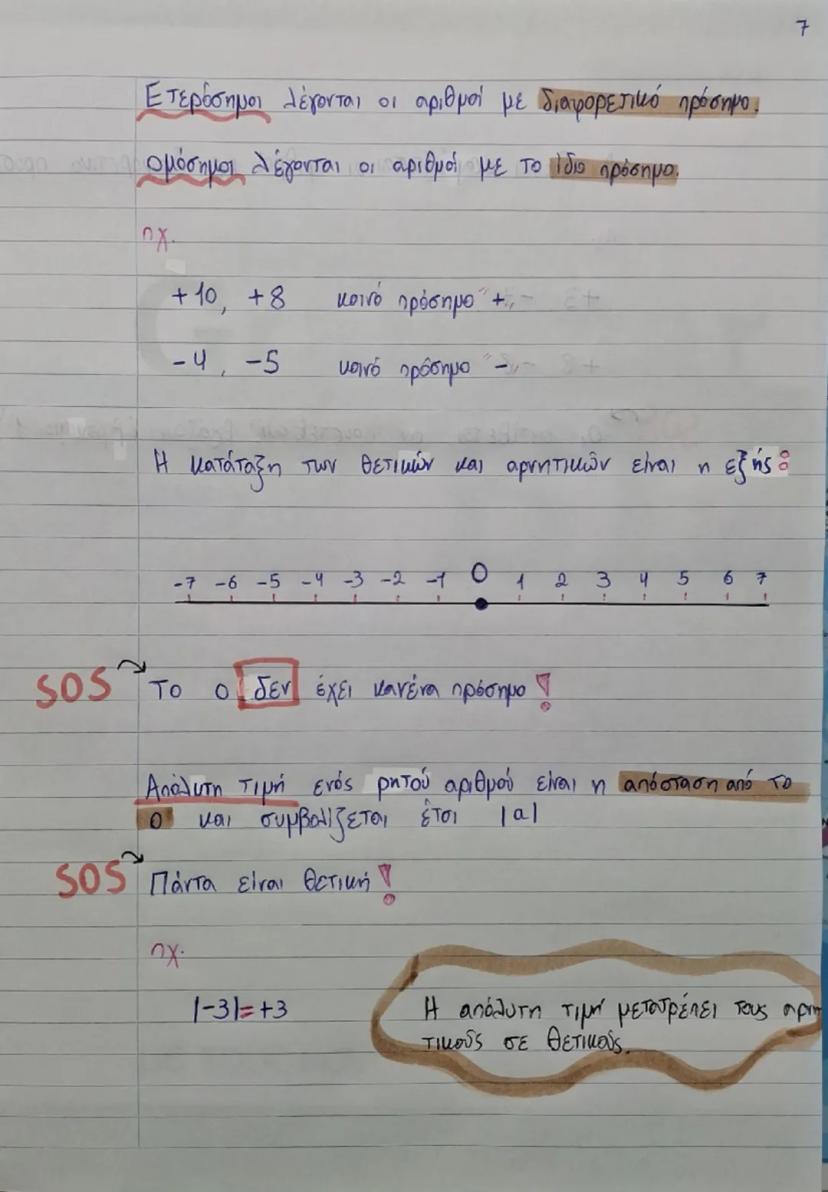 7
Ετερόσημοι λέγονται οι αριθμοί με διαφορετικό πρόσημο.
Ομόσημοι λέγονται οι αριθμοί με το ίδιο πρόσημο.
πχ.
+10, +8 κοινό πρόσημο "+"
-4, -5 κοινό πρόσημο "-"
Η κατάταξη των θετικών και αρνητικών είναι η εξής:
-7 -6 -5 -4 -3 -2 -1 0 1 2 3 4 5 6 7
SOS Το 0 δεν έχει κανένα πρόσημο!
Απόλυτη τιμή ενός ρητού αριθμού είναι η απόσταση από το
0 και συμβολίζεται έτσι |α|
SOS Πάντα είναι θετική!
πχ.
|-3|=+3
Η απόλυτη τιμή μετατρέπει τους αρνη
τικούς σε θετικούς.